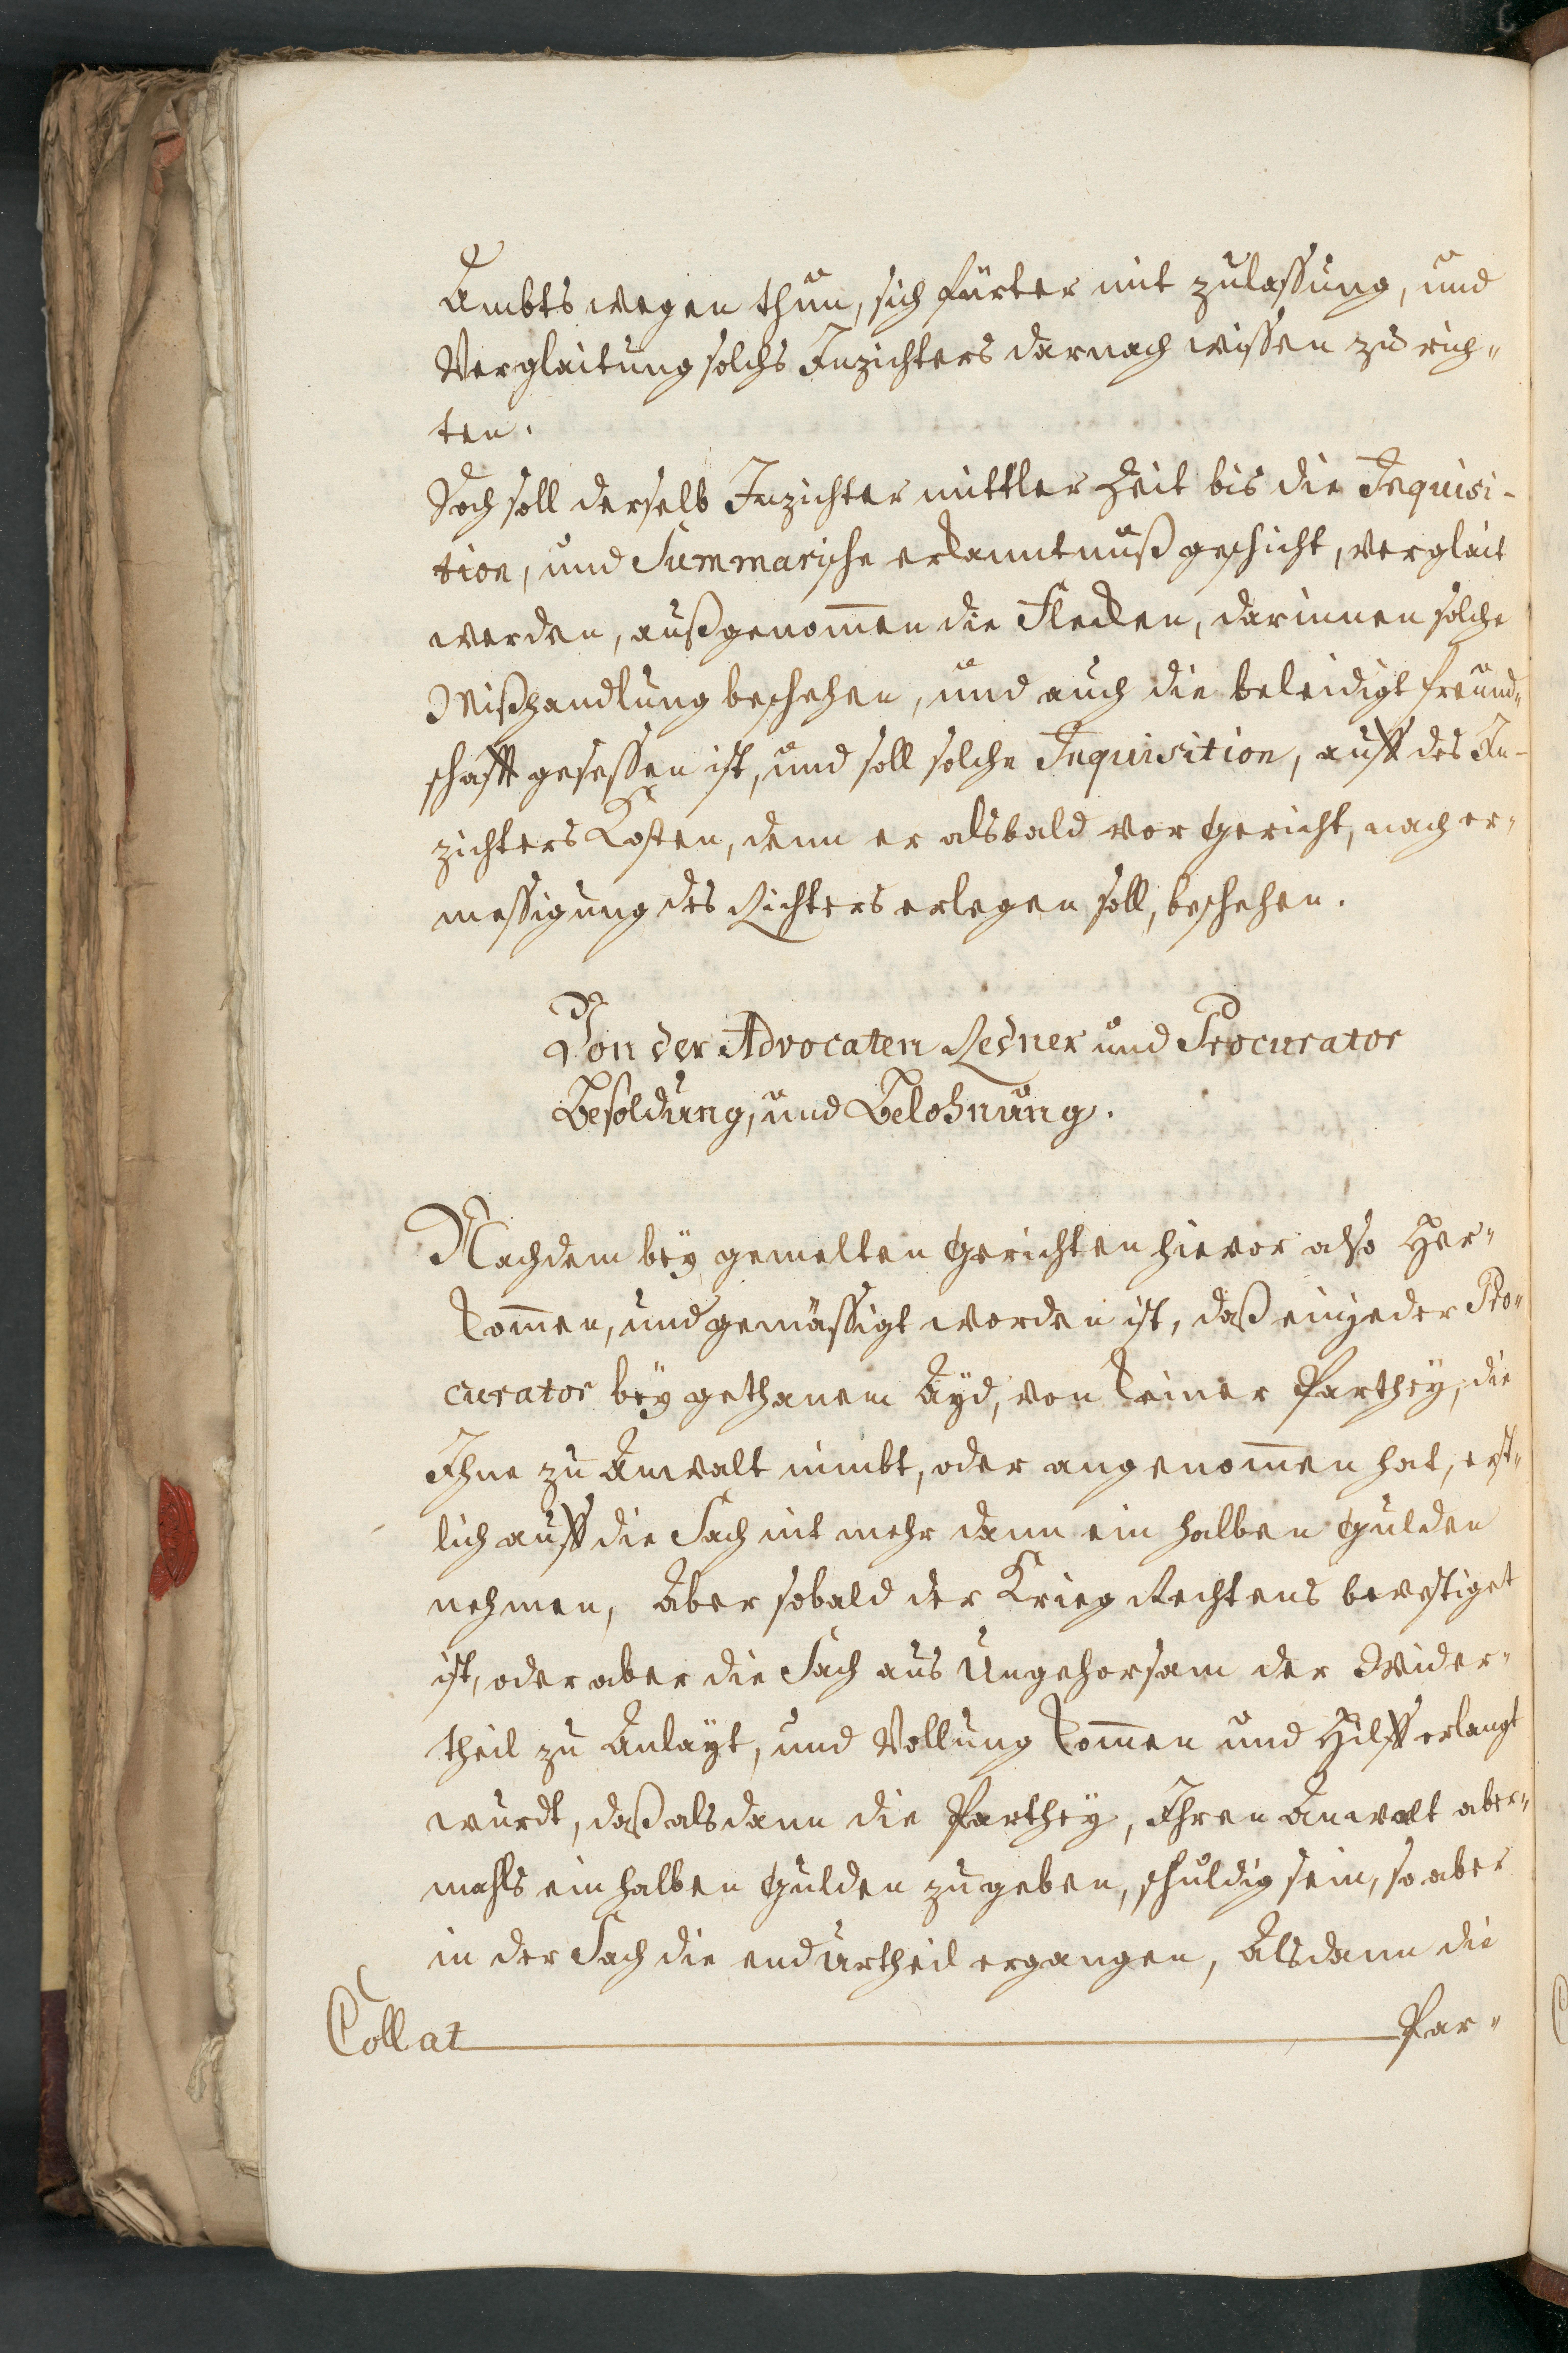 Ambts wegen thun, sich fürter mit zulassung, und
Verglaitung solchs Inzichters darnach wissen zu rich„
ten.
Doch soll derselb Inzichter mittler Zeit bis die Inquisi-
tion, und Summarische erkanntnuß geschicht, verglait
werden, außgenom̅en die Flecken, darinnen solche
Mißhandlung beschehen, und auch die beleidigt freund„
schafft gesessen ist, und soll solche Inquisition, auff des In-
zichters Kosten, denn er alsbald vor Gericht, nach er„
messigung des Richters erlegen soll, beschehen.
Von der Advocaten Redner und Procurator
Besoldung, und Belohnung.
Nachdem bey gemelten Gerichten hievor also Her„
kom̅en, und gemässigt worden ist, daß ein jeder Pro„
curator bey gethanem Ayd, von keiner Parthey, die
Ihne zu Anwalt nimbt, oder angenom̅en hat, erst„
lich auff die Sach nit mehr dann ein halben Gulden
nehmen, Aber sobald der Krieg Rechtens bevestiget
ist, oder aber die Sach aus Ungehorsam der Wider„
theil zu Anlayt, und Vollung kom̅en und Hilff erlangt
wurdt, daß als dann die Parthey, Ihren Anwalt aber„
mahls ein halben Gulden zu geben, schuldig sein, so aber
in der Sach die endurtheil ergangen, Alsdann die
Collat Par„